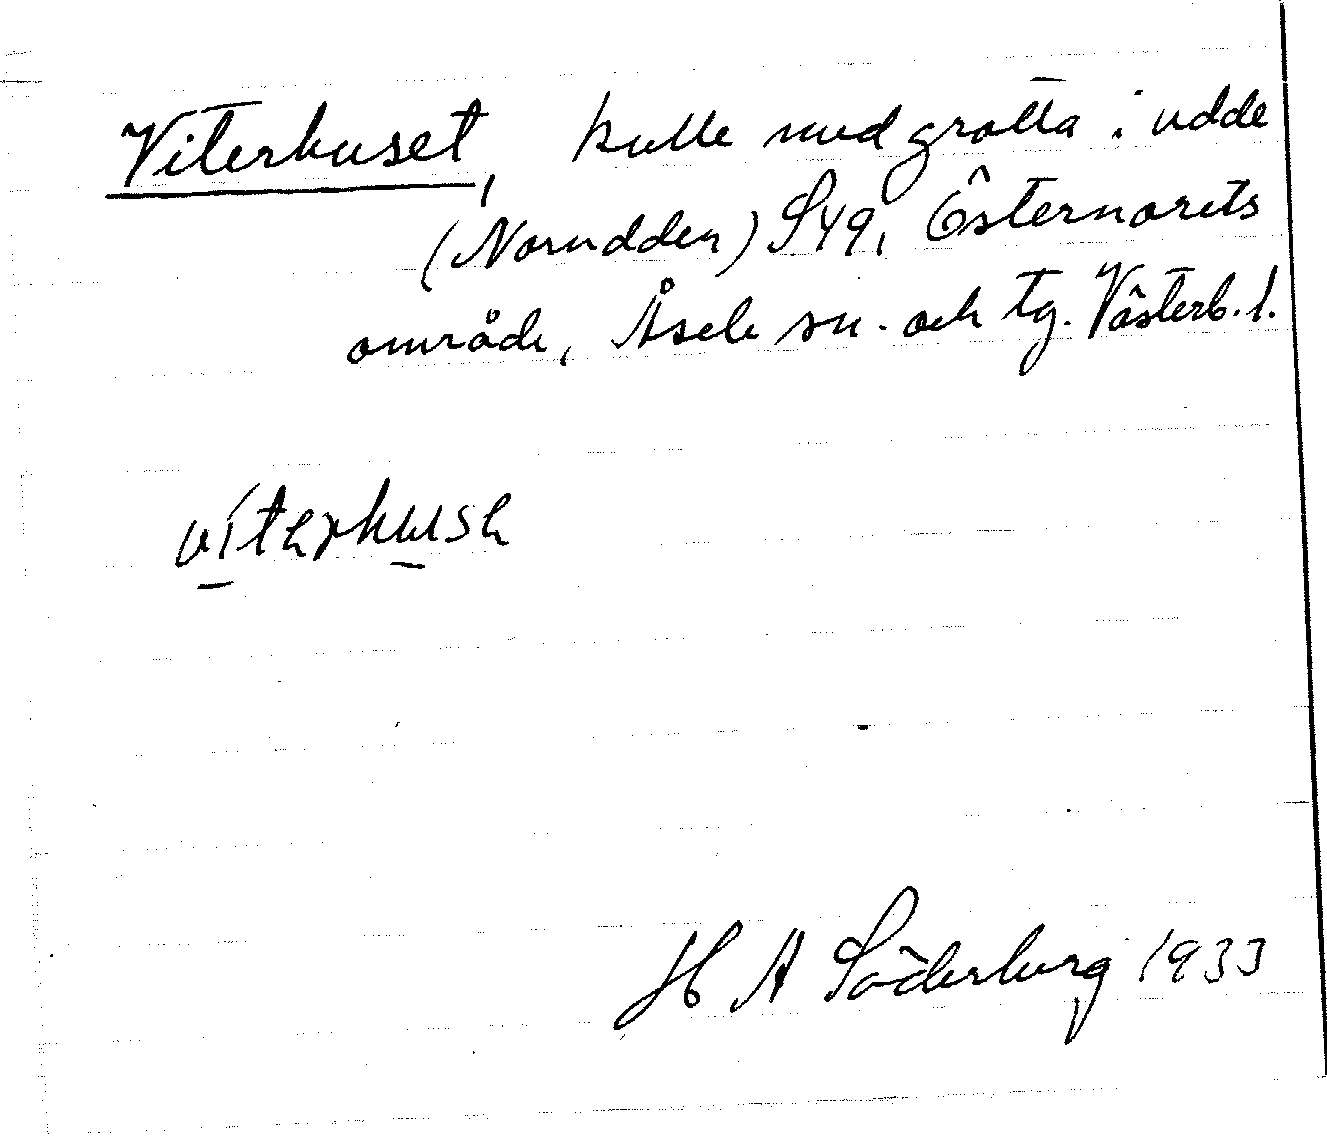 Viterhuset, kulle med grotta i udde
(Norudden) S49, Östernorets
område, Åsele sn. och tg. Västerb. l.
viterhuse
H A Söderberg 1933